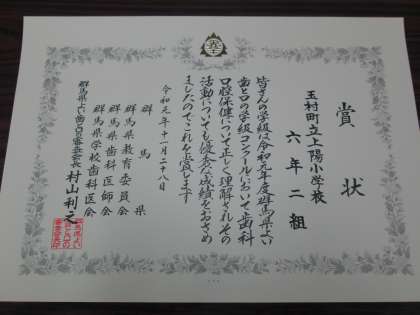 賞状
玉村町立上陽小学校
六年二組
皆さんの学級は令和元年度群馬県よい
歯と口の学級コンクールにおいて歯科
口腔保健について正しく理解されその
活動についても優秀な成績をおさめ
ましたのでこれを賞します
令和元年十一月二十八日
群馬県
群馬県教育委員会
群馬県歯科医師会
群馬県学校歯科医会
群馬県よい歯と口の審査会長 村山利之